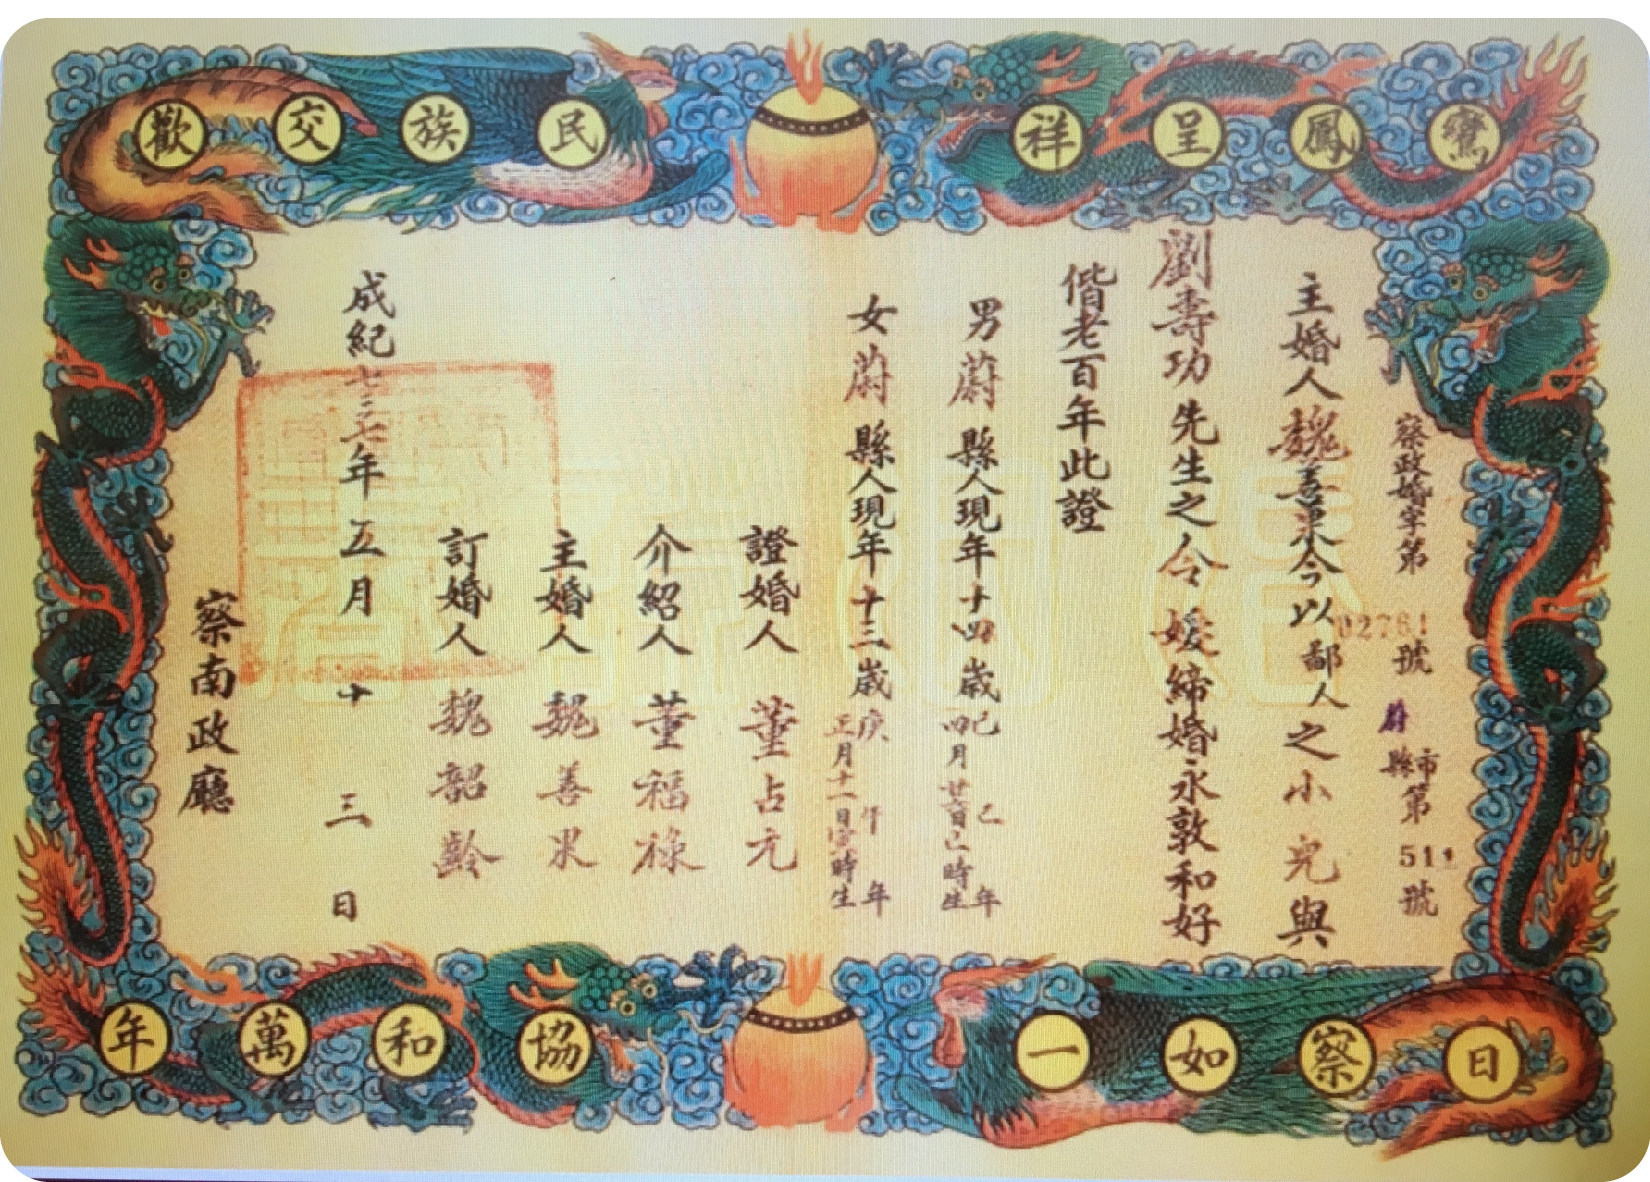 鸞鳳呈祥
民族交歡
察政婚字第02761號
蔚縣市第511號
主婚人魏善果今以鄙人之小兒與
劉壽功先生之令媛締婚永敦和好
偕老百年此證
男蔚縣人現年十四歲己巳年四月廿日巳時生
女蔚縣人現年十三歲庚午年正月十一日時生
證婚人董占元
介紹人董福祿
主婚人魏善果
訂婚人魏韶齡
成紀七三七年五月十三日
察南政廳
日察如一
協和萬年